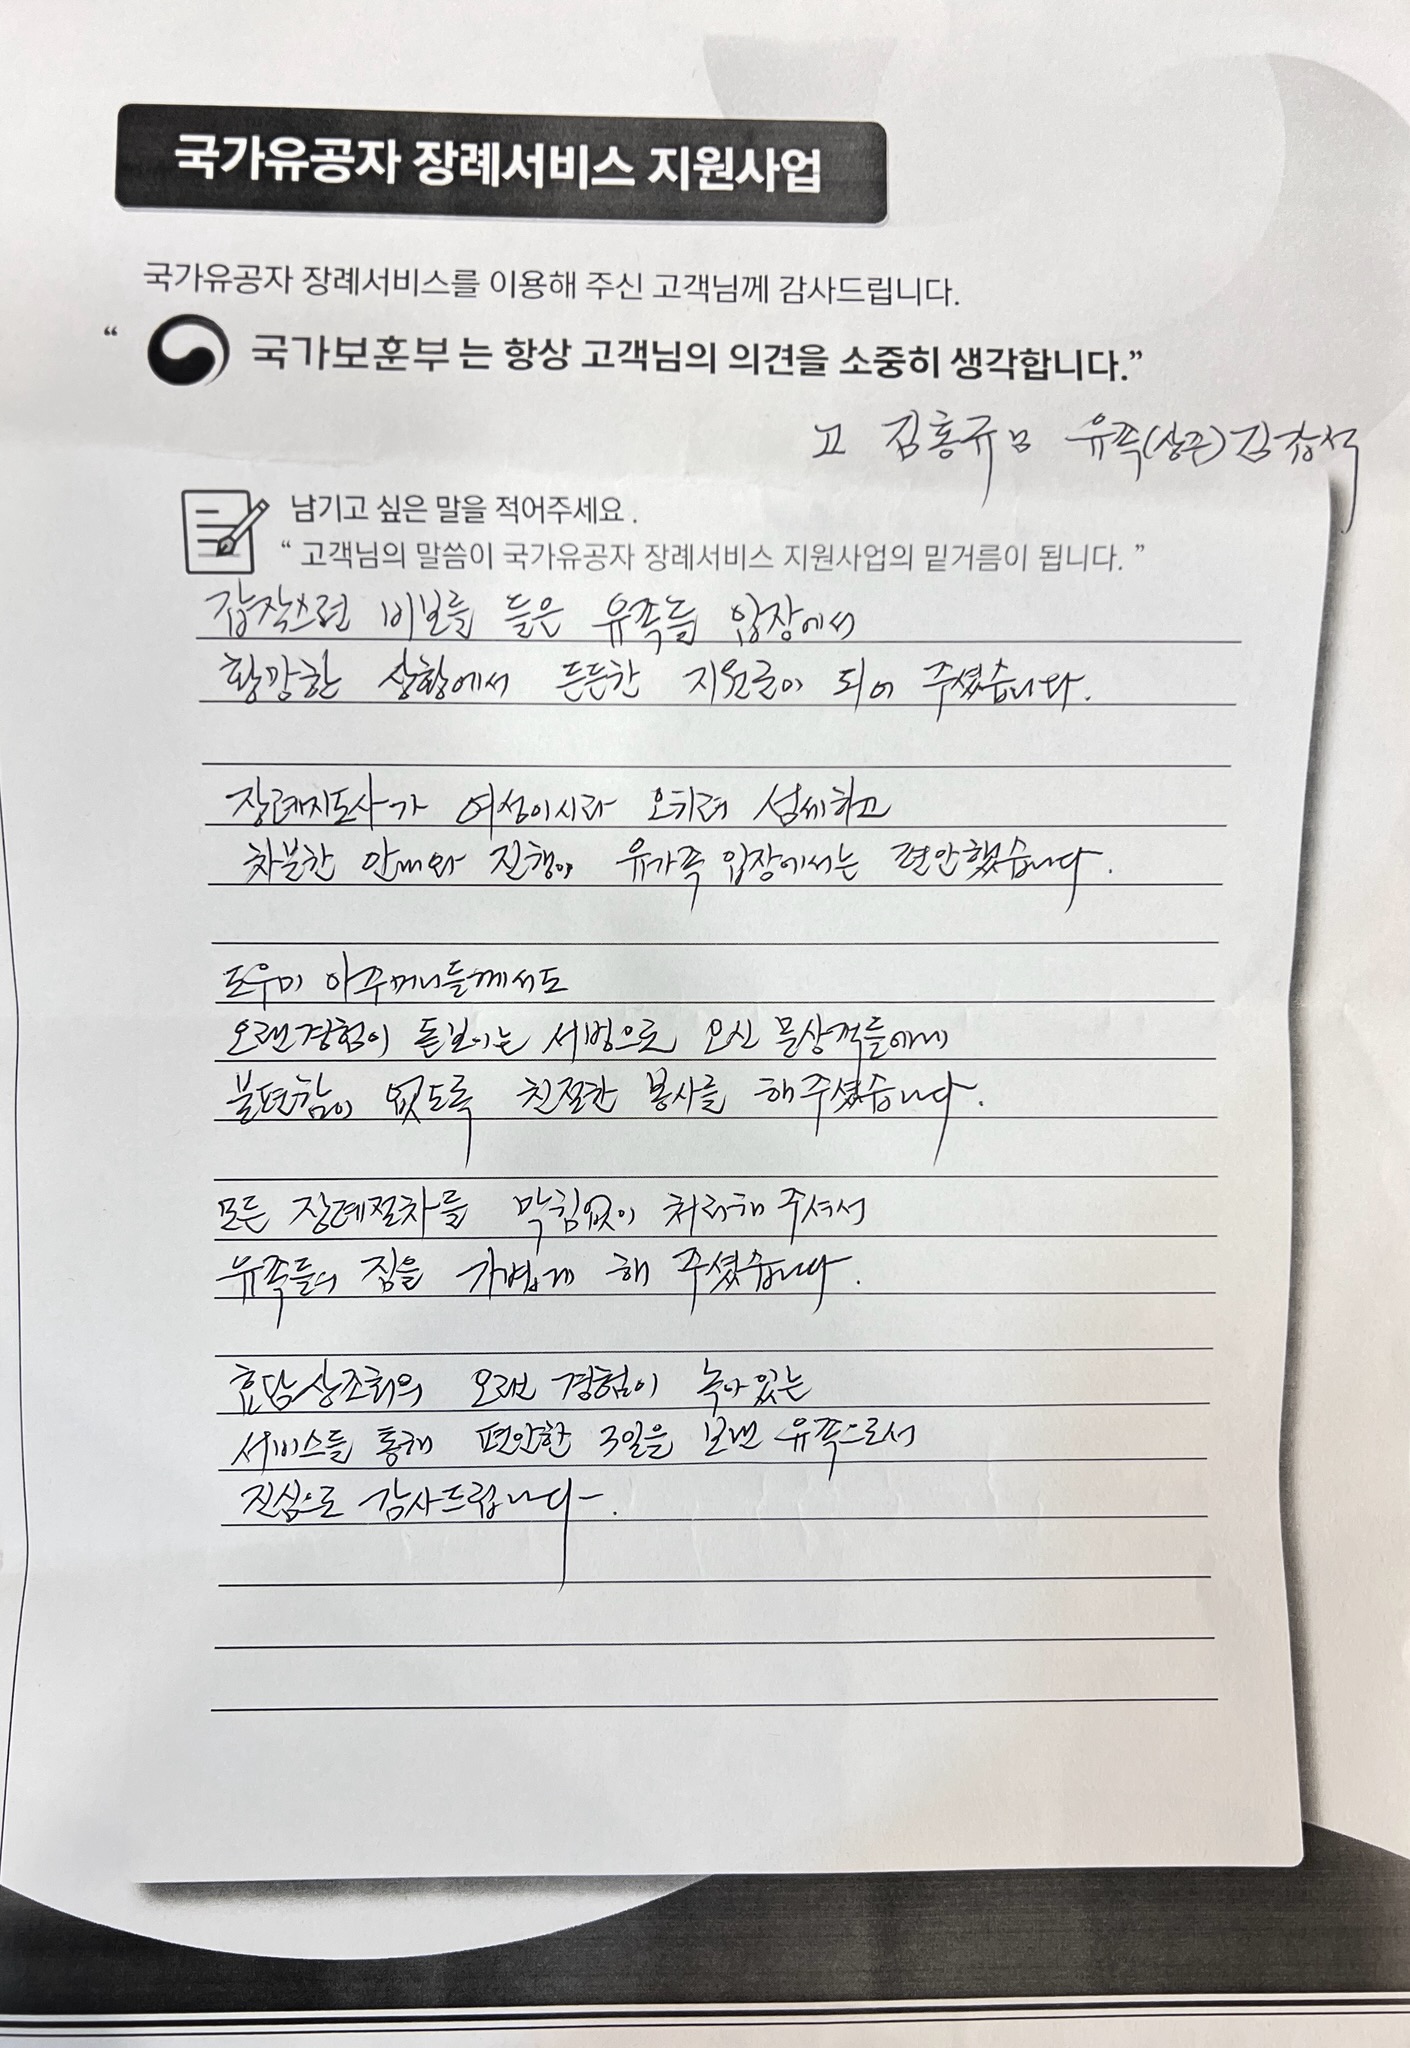 국가유공자 장례서비스 지원사업
국가유공자 장례서비스를 이용해 주신 고객님께 감사드립니다.
“ 국가보훈부 는 항상 고객님의 의견을 소중히 생각합니다.”
고 김홍규님 유족(상주) 김창석
남기고 싶은 말을 적어주세요.
“ 고객님의 말씀이 국가유공자 장례서비스 지원사업의 밑거름이 됩니다. ”
갑작스런 비보를 들은 유족들 입장에서
황망한 상황에서 든든한 지원군이 되어 주셨습니다.
장례지도사가 여성이시라 오히려 섬세하고
차분한 안내와 진행이 유가족 입장에서는 편안했습니다.
도우미 아주머니들께서도
오랜경험이 돋보이는 서빙으로 오신 문상객들에게
불편함이 없도록 친절한 봉사를 해주셨습니다.
모든 장례절차를 막힘없이 처리해 주셔서
유족들의 짐을 가볍게 해 주셨습니다.
효담상조회의 오랜 경험이 녹아있는
서비스를 통해 편안한 3일을 보낸 유족으로서
진심으로 감사드립니다.